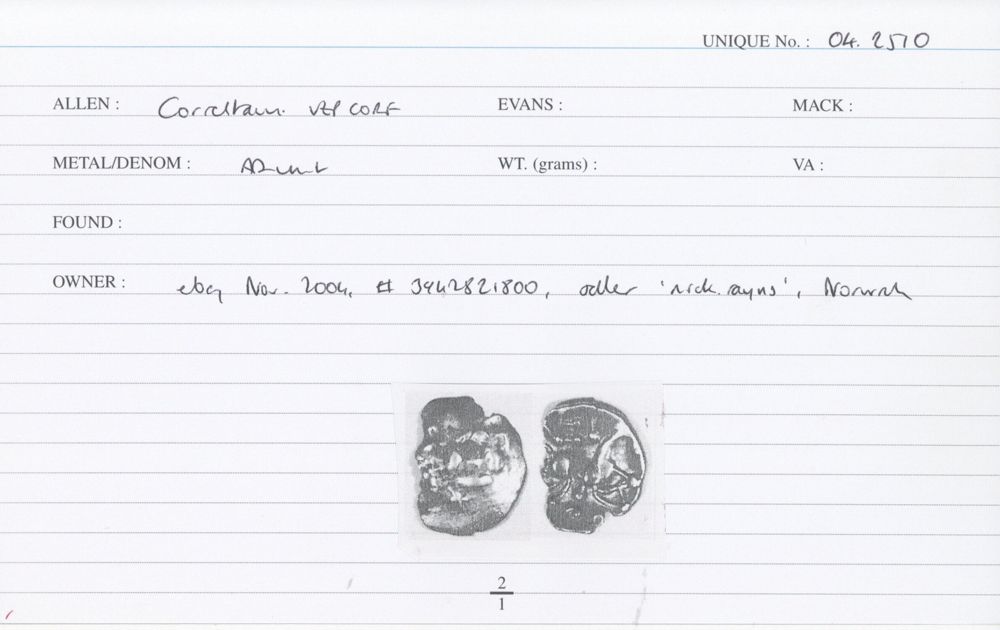 UNIQUE No. : 04. 2510
ALLEN : Corieltauvi. VEP CORF EVANS : MACK :
METAL/DENOM : AR unit WT. (grams) : VA :
FOUND :
OWNER : ebay Nov. 2004, # 3942821800, seller 'nick.rayns', Norwich
2
1